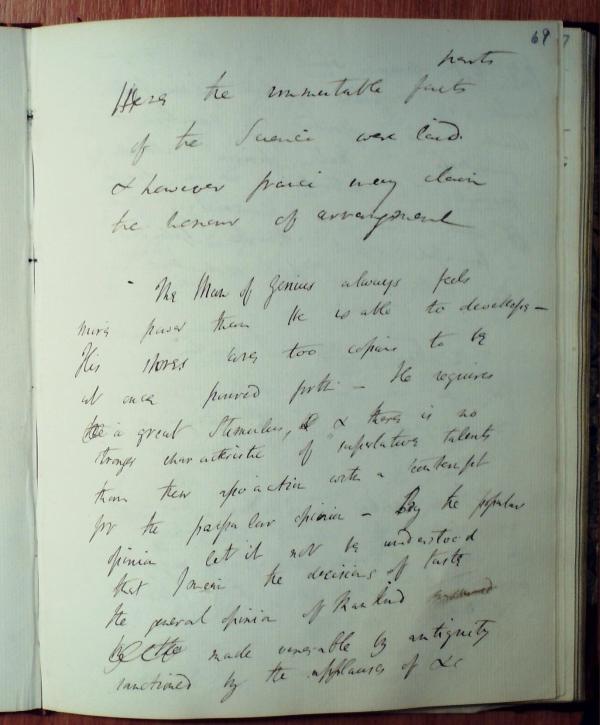 69
parts
Here the immutable facts
of the Science were laid.
& however France may claim
the honour of arrangement
The Man of Genius always feels
more power than he is able to develope –
His stores are too copious to be
at once poured forth – He requires
a great Stimulus, & there is no
stronger characteristic of superlative talents
than their association with a contempt
for the popular opinion – By the popular
opinion let it not be understood
that I mean the decisions of taste
the general opinion of Mankind
made venerable by antiquity
sanctioned by the applauses of &c